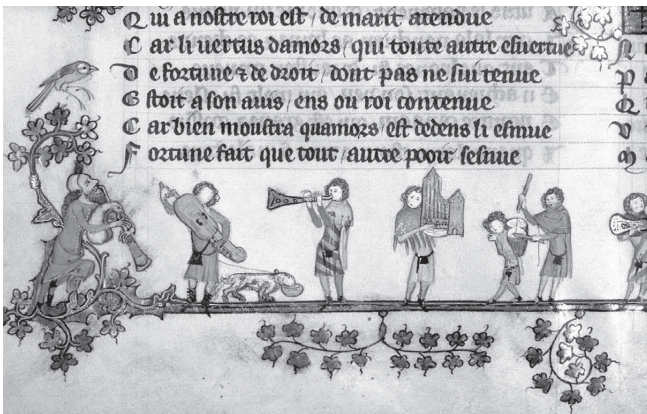 Q ui a nostre roi est / de marit atendue
C ar li uertus damors / qui toute autre esuertue
D e fortune ⁊ de droit / dont pas ne sui tenue
E stoit a son auis / ens ou roi contenue
C ar bien moustra quamors / est dedens li esmue
F ortune fait que tout / autre pooir
N
P
Q
V
M